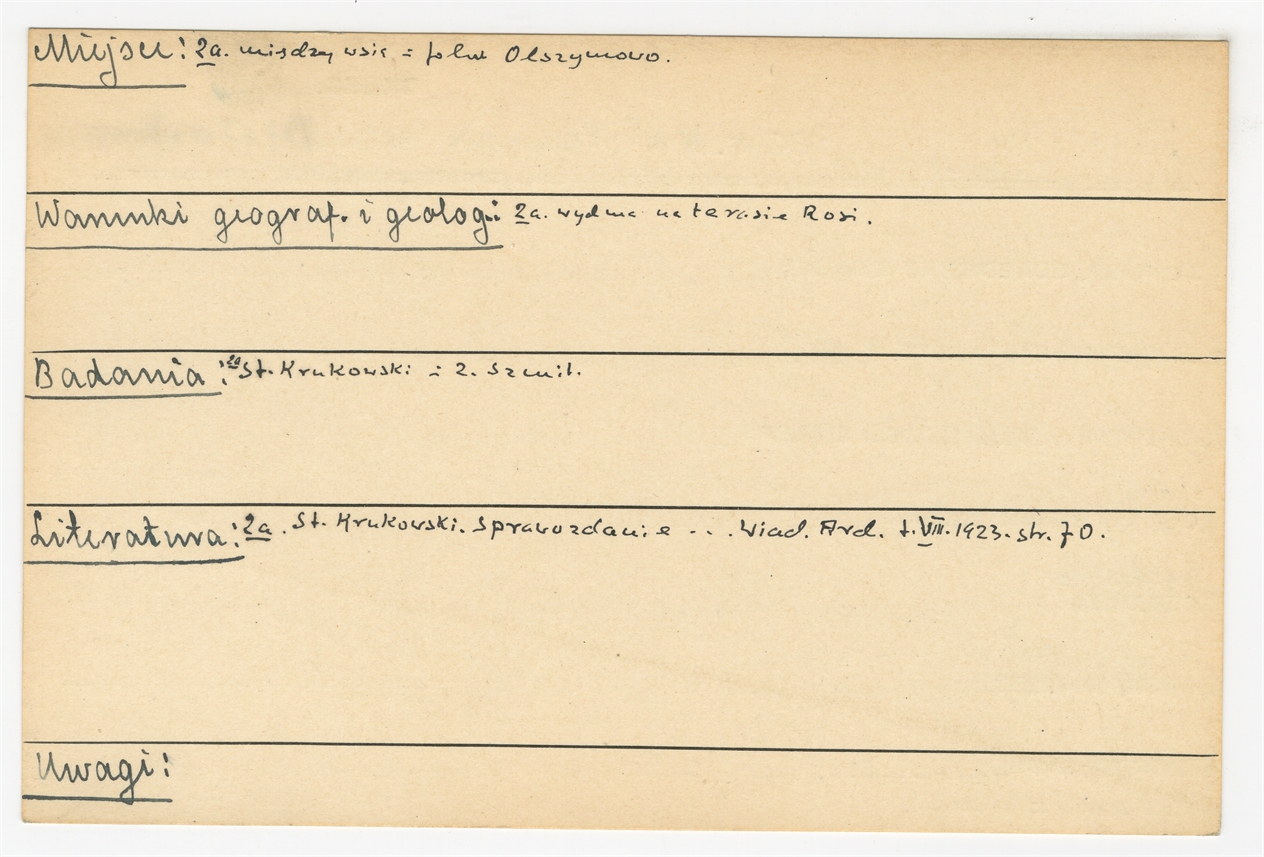 Miejsce: 2a. między wsią i folw Olszymowo.
Warunki geograf. i geolog.: 2a. wydma na terasie Rosi.
Badania: 2a St. Krukowski i Z. Szmit.
Literatura: 2a. St. Krukowski. Sprawozdanie ... Wiad. Ard. t. VIII. 1923. str. 70.
Uwagi: